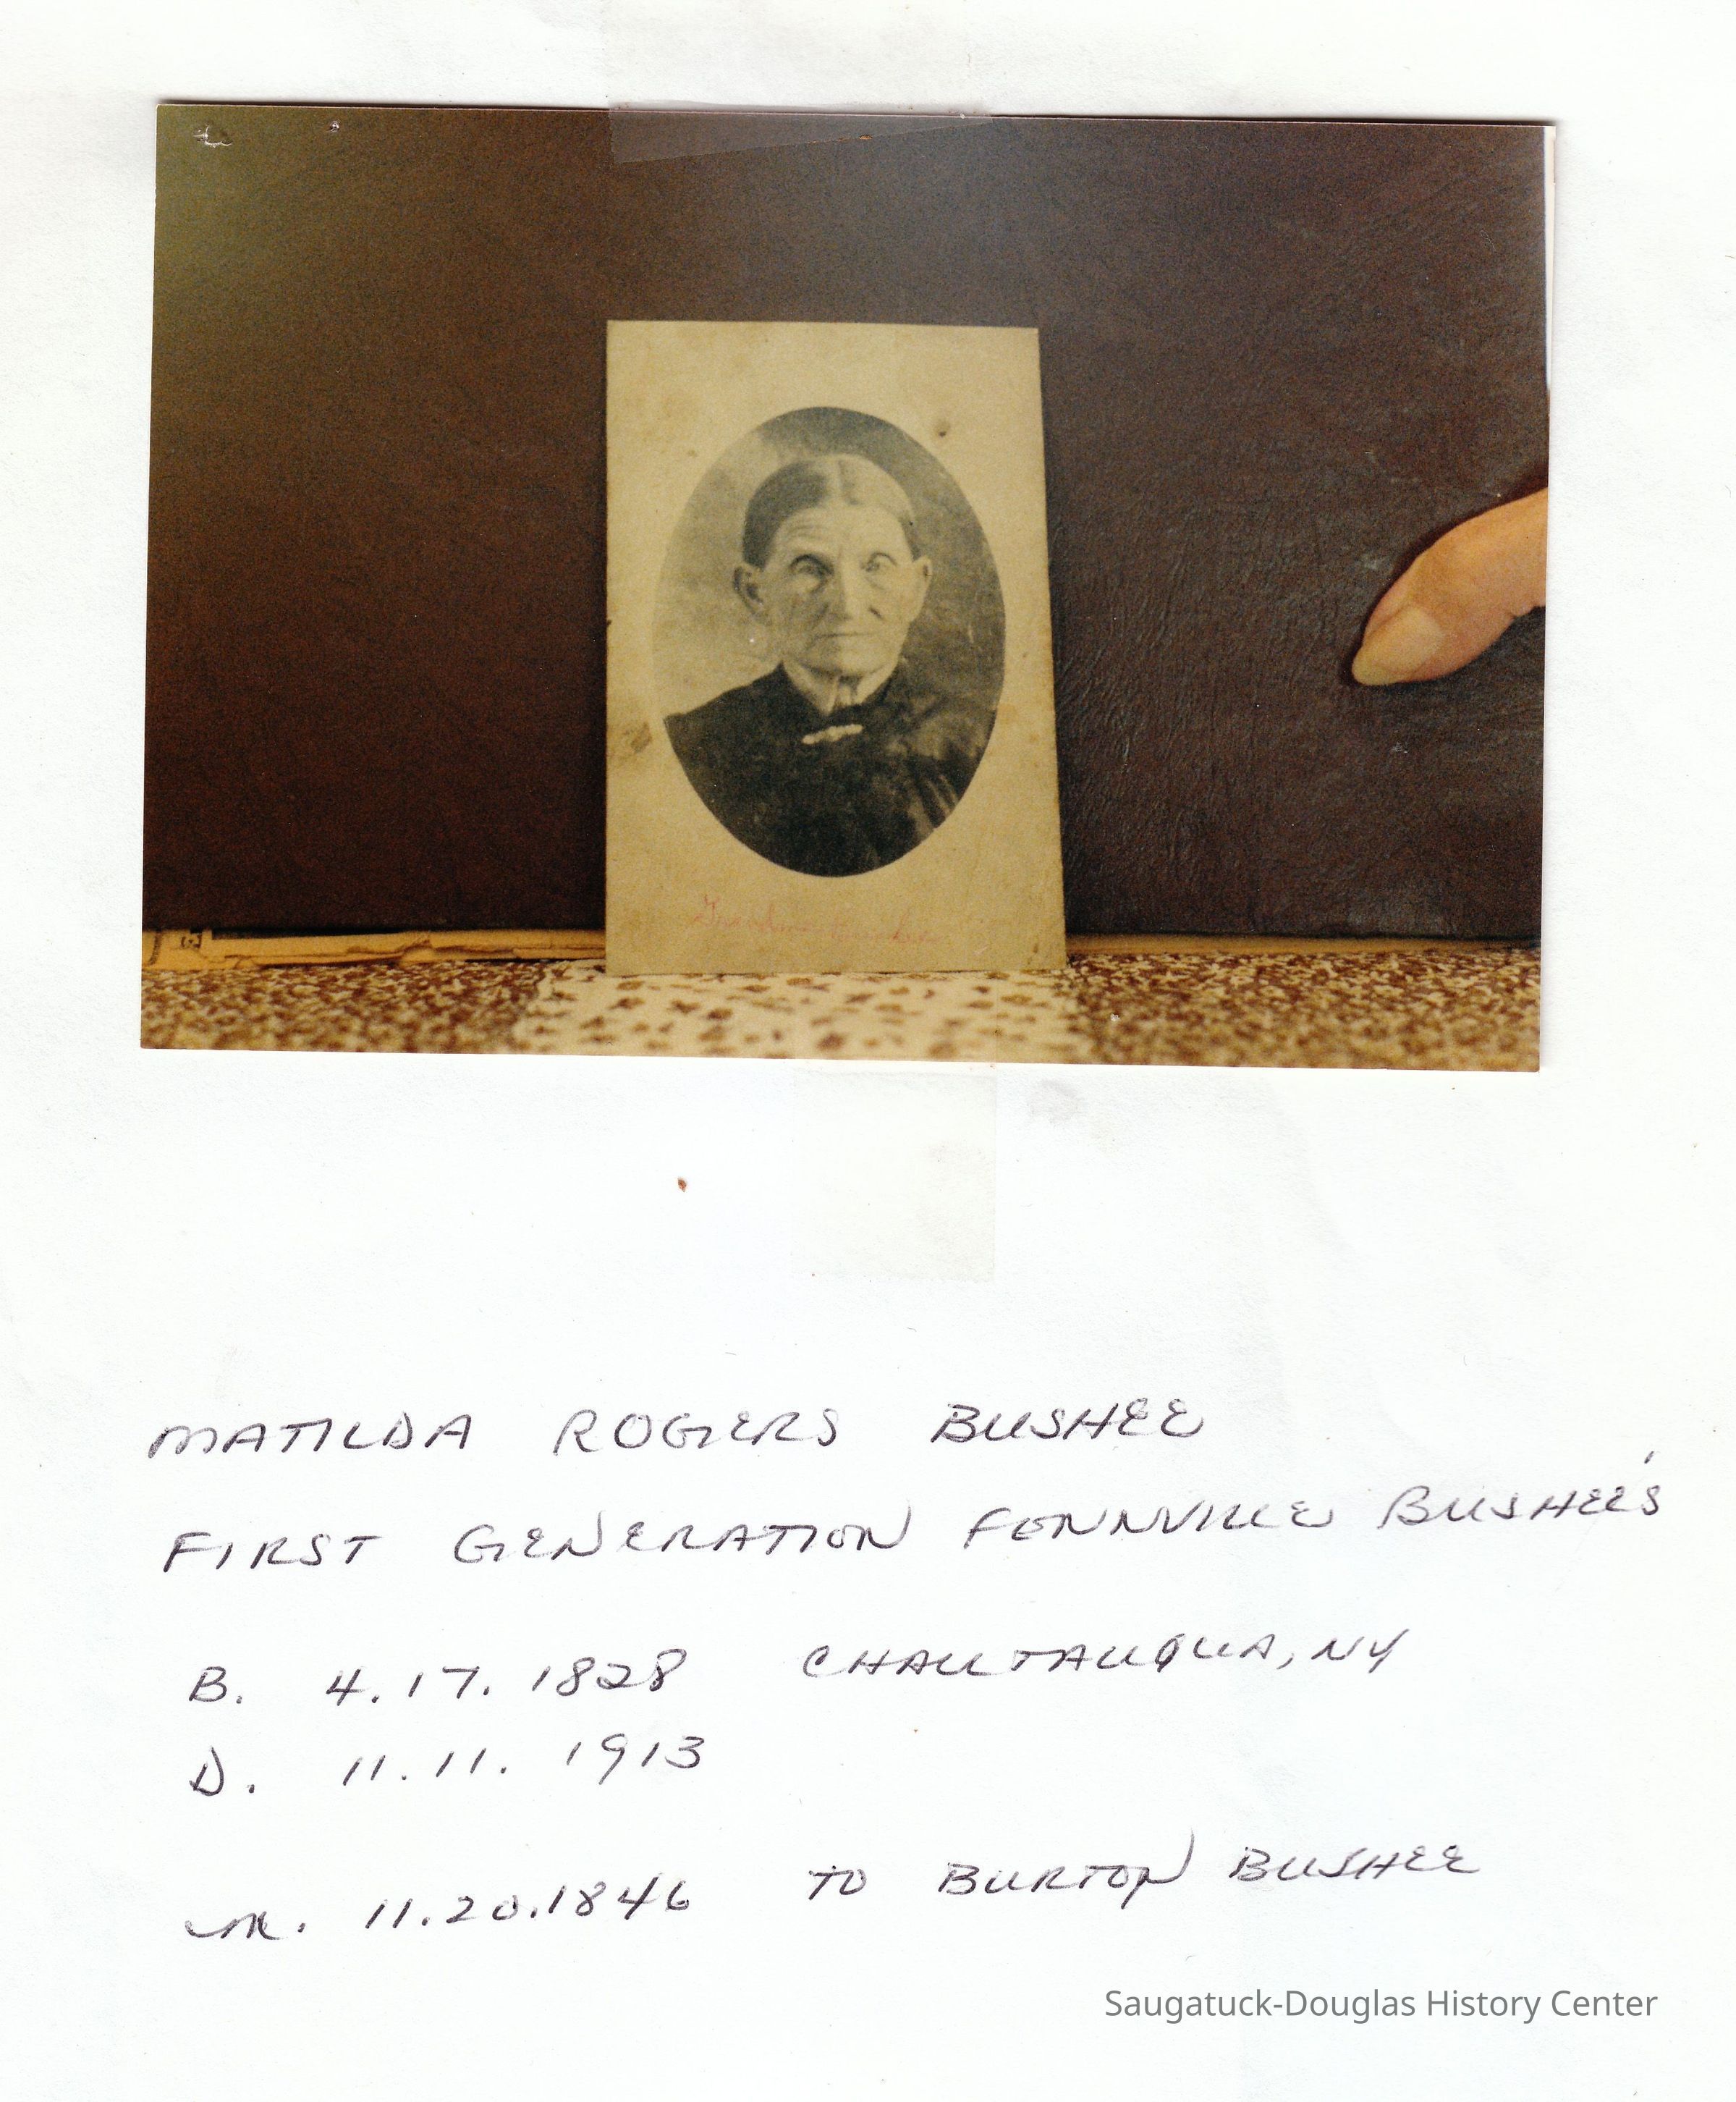 MATILDA ROGERS BUSHEE
FIRST GENERATION FENNVILLE BUSHEE'S
B. 4.17.1828 CHAUTAUQUA, NY
D. 11.11.1913
M. 11.20.1846 TO BURTON BUSHEE
Saugatuck-Douglas History Center